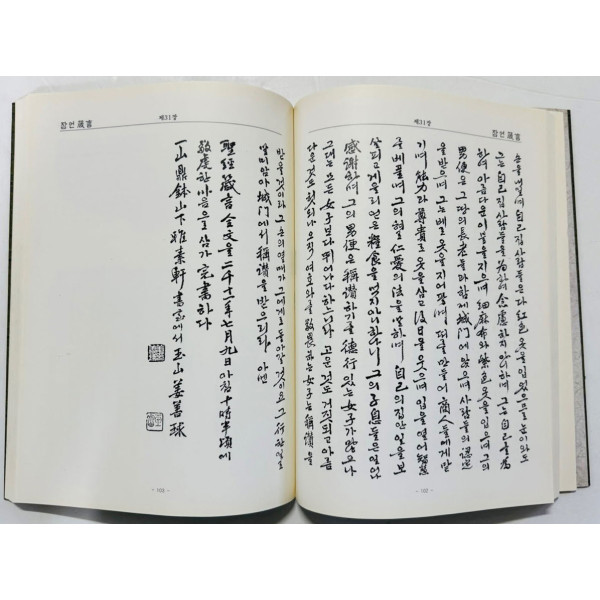 제31장
잠언 箴言
손을 내밀며 自己 집 사람들은 다 紅色 옷을 입었으므로 눈이 와도
그는 自己 집 사람들을 爲하여 念慮하지 아니하며 그는 自己를 爲
하여 아름다운 이불을 지으며 細麻布와 紫色 옷을 입으며 그의
男便은 그 땅의 長老들과 함께 城門에 앉으며 사람들의 認定
을 받으며 그는 베로 옷을 지어 팔며 띠를 만들어 商人들에게 맡
기며 能力과 尊貴로 옷을 삼고 後日을 웃으며 입을 열어 智慧
를 베풀며 그의 혀로 仁愛의 法을 말하며 自己의 집안 일을 보
살피고 게을리 얻은 糧食을 먹지 아니하나니 그의 子息들은 일어나
感謝하며 그의 男便은 稱讚하기를 德行 있는 女子가 많으나
그대는 모든 女子보다 뛰어나다 하느니라 고운 것도 거짓되고 아름
다운 것도 헛되나 오직 여호와를 敬畏하는 女子는 稱讚을
- 102 -
잠언 箴言
제31장
받을 것이라 그 손의 열매가 그에게로 돌아갈 것이요 그 行한 일로
말미암아 城門에서 稱讚을 받으리라 아멘
聖經 箴言 全文을 二千十一年 七月 九日 아침 十時半頃에
敬虔한 마음으로 삼가 完書하다
一山 鼎鉢山下 雅素軒 書室에서 玉山 姜善球
- 103 -